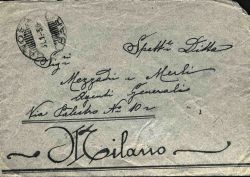 Spett. Ditta
Sigi.
Mezzadri e Merli
Agenti Generali
Via Palestro No 10
Milano